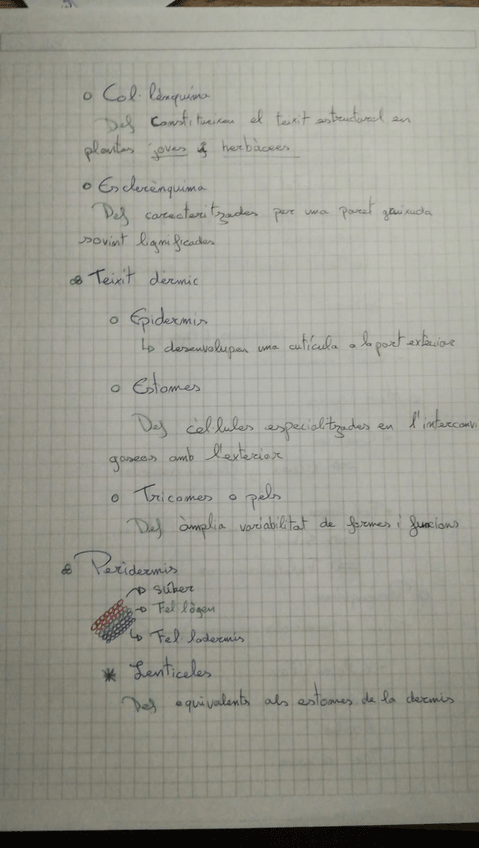 o Col·lènquima
Def Constitueixen el teixit estructural en
plantes joves i herbàcees
o Esclerènquima
Def caracteritzades per una paret gruixuda
sovint lignificades
Teixit dèrmic
o Epidermis
↳ desenvolupen una cutícula a la part exterior
o Estomes
Def cèl·lules especialitzades en l'interconvi
gaseos amb l'exterior
o Tricomes o pels
Def àmplia variabilitat de formes i funcions
Peridermis
→ súber
→ Fel·lògen
↳ Fel·lodermis
* Lenticeles
Def equivalents als estomes de la dermis